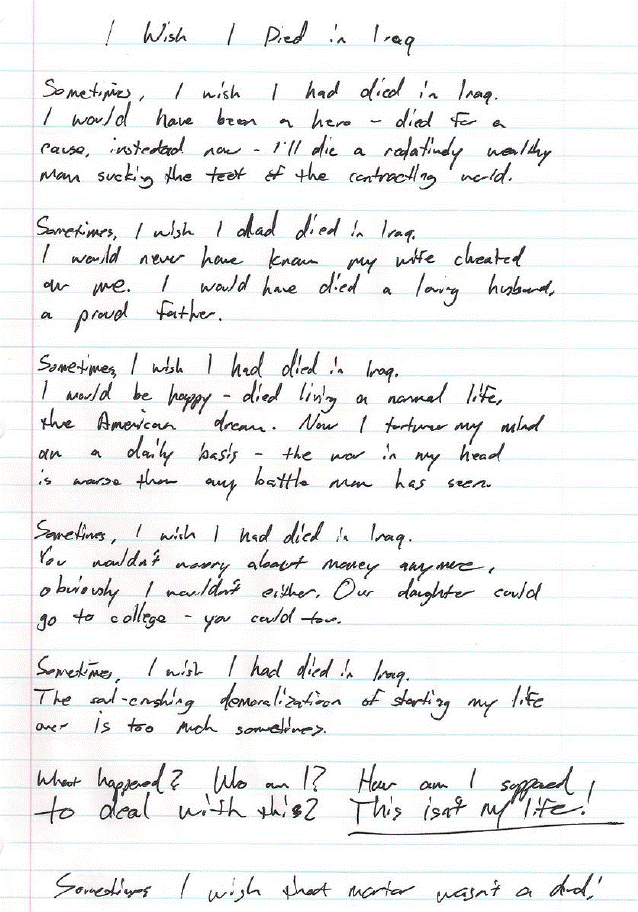 I Wish I Died in Iraq
Sometimes, I wish I had died in Iraq.
I would have been a hero - died for a
cause, instedad now - I'll die a relatively wealthy
man sucking the teet of the contracting world.
Sometimes, I wish I dad died in Iraq.
I would never have known my wife cheated
on me. I would have died a loving husband,
a proud father.
Sometimes, I wish I had died in Iraq.
I would be happy - died living a normal life,
the American dream. Now I torture my mind
on a daily basis - the war in my head
is worse than any battle man has seen.
Sometimes, I wish I had died in Iraq.
You wouldn't worry about money anymore,
obviously I wouldn't either. Our daughter could
go to college - you could too.
Sometimes, I wish I had died in Iraq.
The soul-crushing demoralization of starting my life
over is too much sometimes.
What happened? Who am I? How am I supposed
to deal with this? This isn't my life!
Sometimes I wish that mortar wasn't a dud!